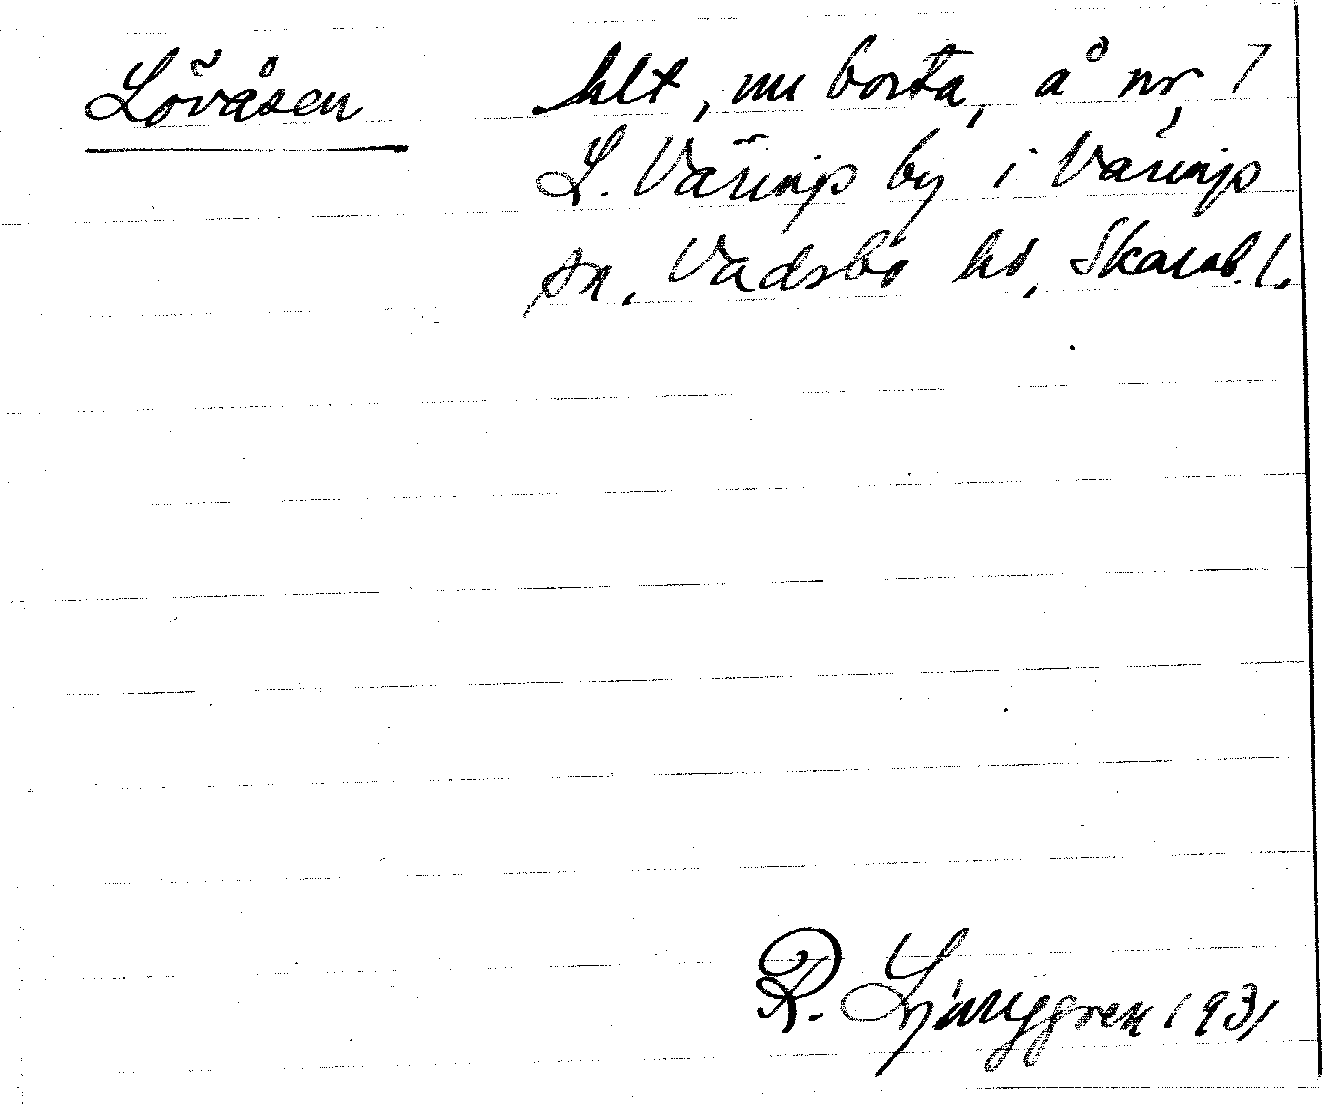 Lövåsen hlt, nu borta, å nr 7
L. Värings by i Värings
sn, Vadsbo hd, Skarab. l.
R. Ljunggren 1931